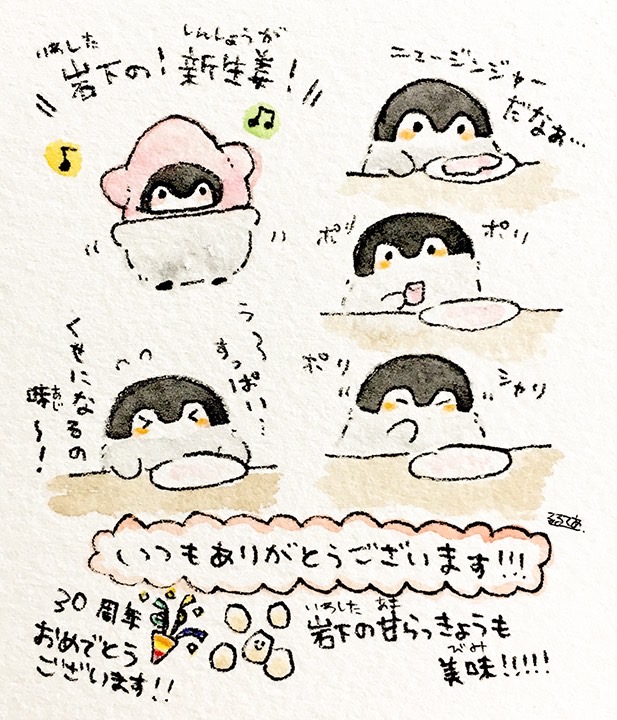 いわした しんしょうが
岩下の！新生姜！
ニュージンジャー
だなぁ…
ポリ ポリ
ポリ シャリ
う〜〜
すっぱい…
くせになるの
あじ
味〜！
るるてあ
いつもありがとうございます!!!
30周年
おめでとう
ございます!!
いわした あま
岩下の甘らっきょうも
びみ
美味!!!!!